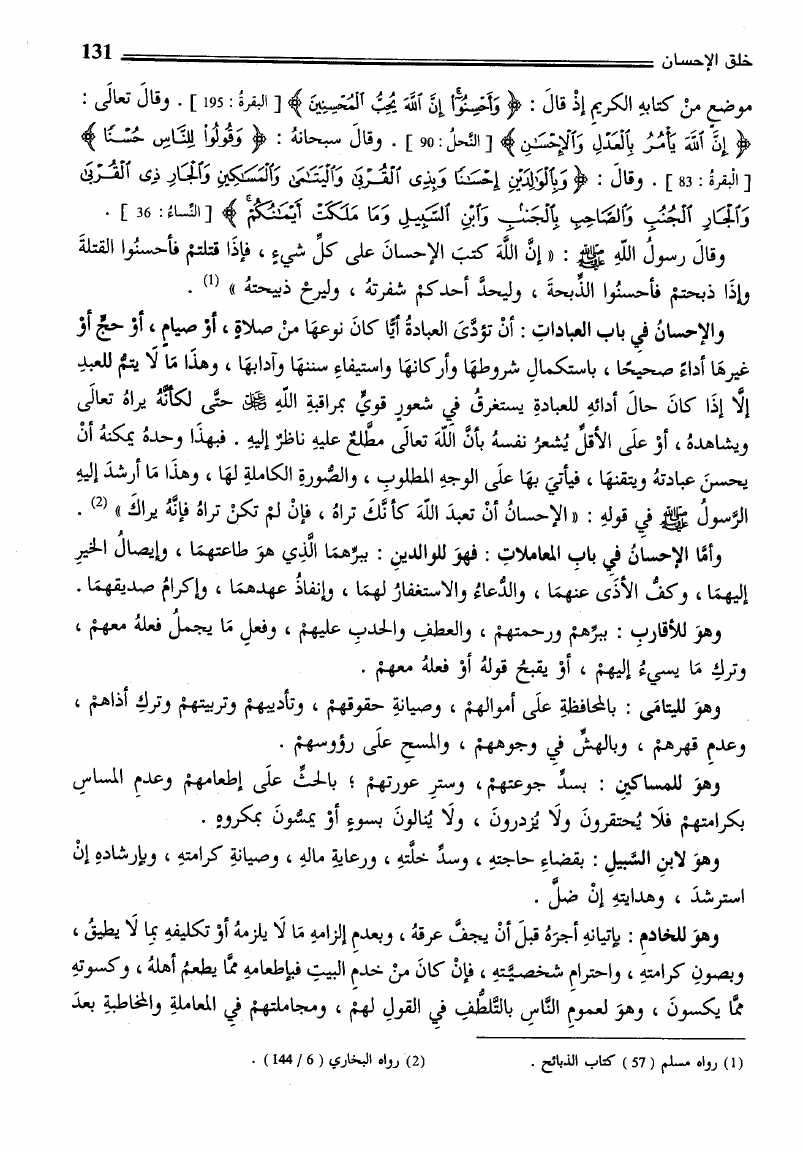 خلق الإحسان 131
موضعٍ منْ كتابهِ الكريمِ إذْ قالَ : ﴿ وَأَحْسِنُوٓاْ إِنَّ ٱللَّهَ يُحِبُّ ٱلْمُحْسِنِينَ ﴾ [ البقرةُ : 195 ] . وقالَ تعالَى :
﴿ إِنَّ ٱللَّهَ يَأْمُرُ بِٱلْعَدْلِ وَٱلْإِحْسَٰنِ ﴾ [ النَّحلُ : 90 ] . وقالَ سبحانهُ : ﴿ وَقُولُواْ لِلنَّاسِ حُسْنًا ﴾
[ البقرةُ : 83 ] . وقالَ : ﴿ وَبِٱلْوَٰلِدَيْنِ إِحْسَٰنًا وَبِذِى ٱلْقُرْبَىٰ وَٱلْيَتَٰمَىٰ وَٱلْمَسَٰكِينِ وَٱلْجَارِ ذِى ٱلْقُرْبَىٰ
وَٱلْجَارِ ٱلْجُنُبِ وَٱلصَّاحِبِ بِٱلْجَنۢبِ وَٱبْنِ ٱلسَّبِيلِ وَمَا مَلَكَتْ أَيْمَٰنُكُمْ ﴾ [ النِّساءُ : 36 ] .
وقالَ رسولُ اللَّهِ ﷺ : « إنَّ اللَّهَ كتبَ الإحسانَ علَى كلِّ شيءٍ ، فإذَا قتلتمْ فأحسنُوا القتلةَ
وإذَا ذبحتمْ فأحسنُوا الذِّبحةَ ، وليحدَّ أحدكمْ شفرتهُ ، وليرحْ ذبيحتهُ » (1) .
والإحسانُ في بابِ العباداتِ : أنْ تؤدَّىَ العبادةُ أيًّا كانَ نوعهَا منْ صلاةٍ ، أوْ صيامٍ ، أوْ حجٍّ أوْ
غيرهَا أداءً صحيحًا ، باستكمالِ شروطهَا وأركانهَا واستيفاءِ سننهَا وآدابهَا ، وهذَا مَا لَا يتمُّ للعبدِ
إلَّا إذَا كانَ حالَ أدائهِ للعبادةِ يستغرقُ في شعورٍ قويٍّ بمراقبةِ اللَّهِ ﷻ حتَّى لكأنَّهُ يراهُ تعالَى
ويشاهدهُ ، أوْ علَى الأقلِّ يُشعرُ نفسهُ بأنَّ اللَّهَ تعالَى مطَّلعٌ عليهِ ناظرٌ إليهِ . فبهذَا وحدهُ يمكنهُ أنْ
يحسنَ عبادتهُ ويتقنهَا ، فيأتيَ بهَا علَى الوجهِ المطلوبِ ، والصُّورةِ الكاملةِ لهَا ، وهذَا مَا أرشدَ إليهِ
الرَّسولُ ﷺ في قولهِ : « الإحسانُ أنْ تعبدَ اللَّهَ كأنَّكَ تراهُ ، فإنْ لمْ تكنْ تراهُ فإنَّهُ يراكَ » (2) .
وأمَّا الإحسانُ في بابِ المعاملاتِ : فهوَ للوالدينِ : ببرِّهمَا الَّذِي هوَ طاعتهمَا ، وإيصالُ الخيرِ
إليهمَا ، وكفُّ الأذَى عنهمَا ، والدُّعاءُ والاستغفارُ لهمَا ، وإنفاذُ عهدهمَا ، وإكرامُ صديقهمَا .
وهوَ للأقاربِ : ببرِّهمْ ورحمتهمْ ، والعطفِ والحدبِ عليهمْ ، وفعلِ مَا يجملُ فعلهُ معهمْ ،
وتركِ مَا يسيءُ إليهمْ ، أوْ يقبحُ قولهُ أوْ فعلهُ معهمْ .
وهوَ لليتامَى : بالمحافظةِ علَى أموالهمْ ، وصيانةِ حقوقهمْ ، وتأديبهمْ وتربيتهمْ وتركِ أذاهمْ ،
وعدمِ قهرهمْ ، وبالهشِّ في وجوههمْ ، والمسحِ علَى رؤوسهمْ .
وهوَ للمساكينِ : بسدِّ جوعتهمْ، وسترِ عورتهمْ ؛ بالحثِّ علَى إطعامهمْ وعدمِ المساسِ
بكرامتهمْ فلَا يُحتقرونَ ولَا يُزدرونَ ، ولَا يُنالونَ بسوءٍ أوْ يمسُّونَ بمكروهٍ .
وهوَ لابنِ السَّبيلِ : بقضاءِ حاجتهِ ، وسدِّ خلَّتهِ ، ورعايةِ مالهِ ، وصيانةِ كرامتهِ ، وبإرشادهِ إنْ
استرشدَ ، وهدايتهِ إنْ ضلَّ .
وهوَ للخادمِ : بإتيانهِ أجرَهُ قبلَ أنْ يجفَّ عرقهُ ، وبعدمِ إلزامهِ مَا لَا يلزمهُ أوْ تكليفهِ بمَا لَا يطيقُ ،
وبصونِ كرامتهِ ، واحترامِ شخصيَّتهِ ، فإنْ كانَ منْ خدمِ البيتِ فبإطعامهِ ممَّا يطعمُ أهلهُ ، وكسوتهِ
ممَّا يكسونَ ، وهوَ لعمومِ النَّاسِ بالتَّلطُّفِ في القولِ لهمْ ، ومجاملتهمْ في المعاملةِ والمخاطبةِ بعدَ
(1) رواه مسلم ( 57 ) كتاب الذبائح . (2) رواه البخاري ( 6 / 144 ) .